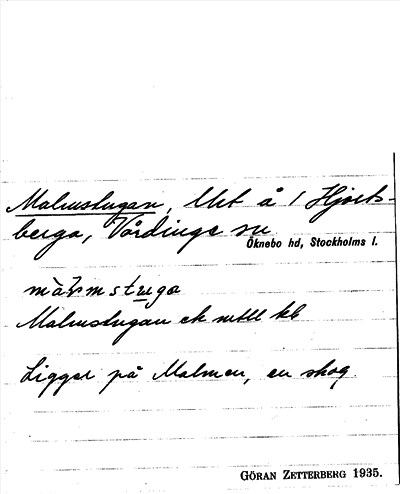 Malmstugan, lht å 1 Hjorts-
berga, Vårdinge sn
Öknebo hd, Stockholms l.
màlmstuga
Malmstugan ek
Ligger på Malmen, en skog
GÖRAN ZETTERBERG 1935.